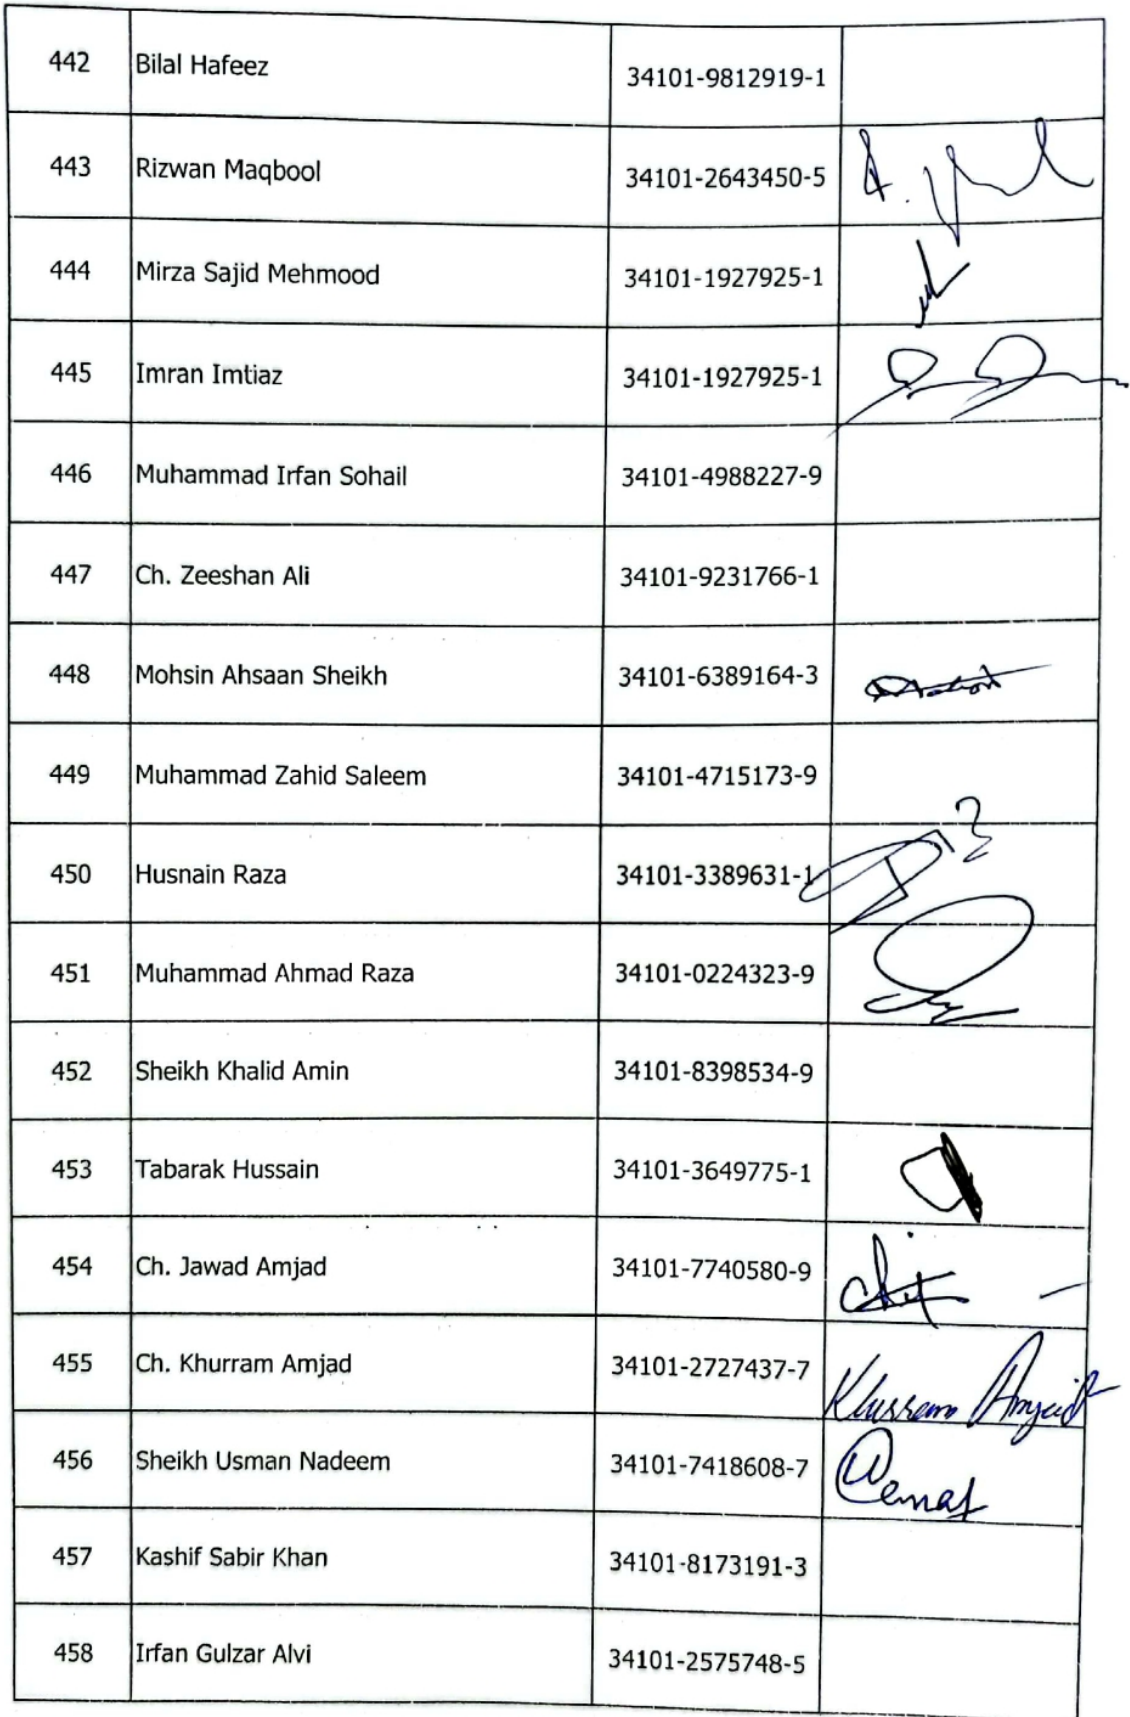 442 Bilal Hafeez 34101-9812919-1
443 Rizwan Maqbool 34101-2643450-5
444 Mirza Sajid Mehmood 34101-1927925-1
445 Imran Imtiaz 34101-1927925-1
446 Muhammad Irfan Sohail 34101-4988227-9
447 Ch. Zeeshan Ali 34101-9231766-1
448 Mohsin Ahsaan Sheikh 34101-6389164-3
449 Muhammad Zahid Saleem 34101-4715173-9
450 Husnain Raza 34101-3389631-1
451 Muhammad Ahmad Raza 34101-0224323-9
452 Sheikh Khalid Amin 34101-8398534-9
453 Tabarak Hussain 34101-3649775-1
454 Ch. Jawad Amjad 34101-7740580-9
455 Ch. Khurram Amjad 34101-2727437-7 Khurram Amjad
456 Sheikh Usman Nadeem 34101-7418608-7
457 Kashif Sabir Khan 34101-8173191-3
458 Irfan Gulzar Alvi 34101-2575748-5